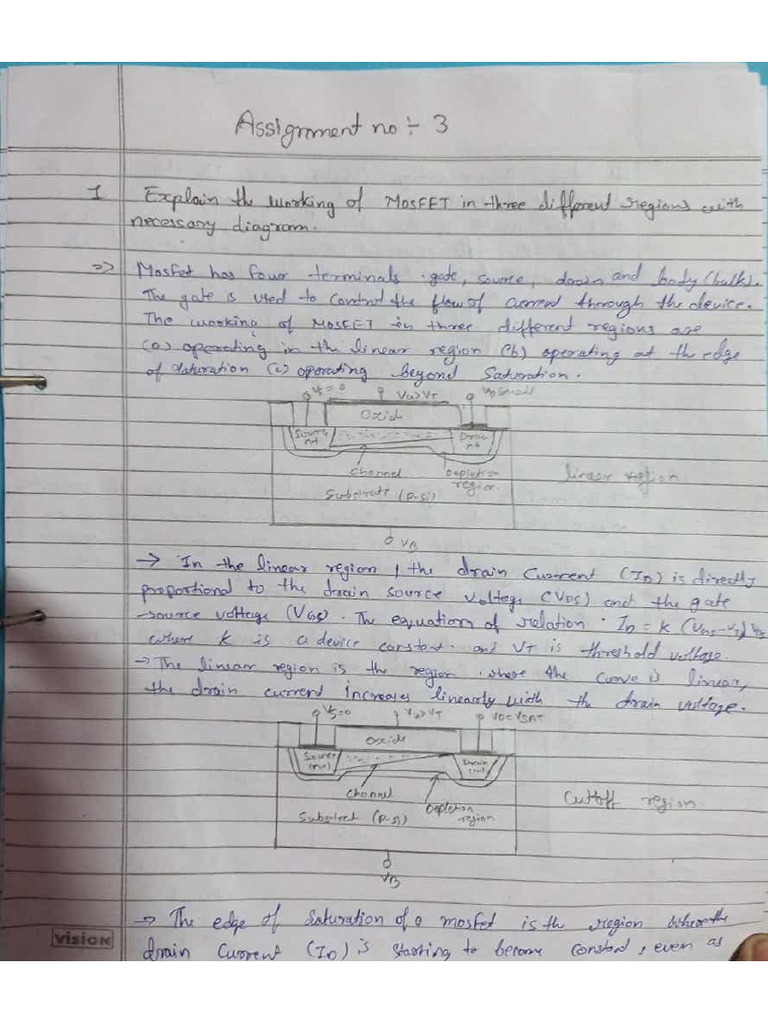 Assignment no ÷ 3
1 Explain the working of MOSFET in three different regions with
necessary diagram.
=> Mosfet has four terminals gate, source, drain and body (bulk).
The gate is used to control the flow of current through the device.
The working of MOSFET in three different regions are
(a) operating in the linear region (b) operating at the edge
of saturation (c) operating beyond saturation.
Vs=0 VG>VT VD small
Oxide
Source n+ Drain n+
channel Depletion
region
Substrate (P-Si)
linear region
VB
→ In the linear region, the drain current (ID) is directly
proportional to the drain source voltage (VDS) and the gate
-source voltage (VGS). The equation of relation ID = K (VGS-VT)
where K is a device constant. and VT is threshold voltage.
→ The linear region is the region where the curve is linear,
the drain current increases linearly with the drain voltage.
Vs=0 VG>VT VD=VSAT
Oxide
Source Drain
channel Depletion
region
Substrect (P-Si)
Cuttoff region
VB
→ The edge of saturation of a mosfet is the region where the
drain current (ID) is starting to become constant, even as
vision